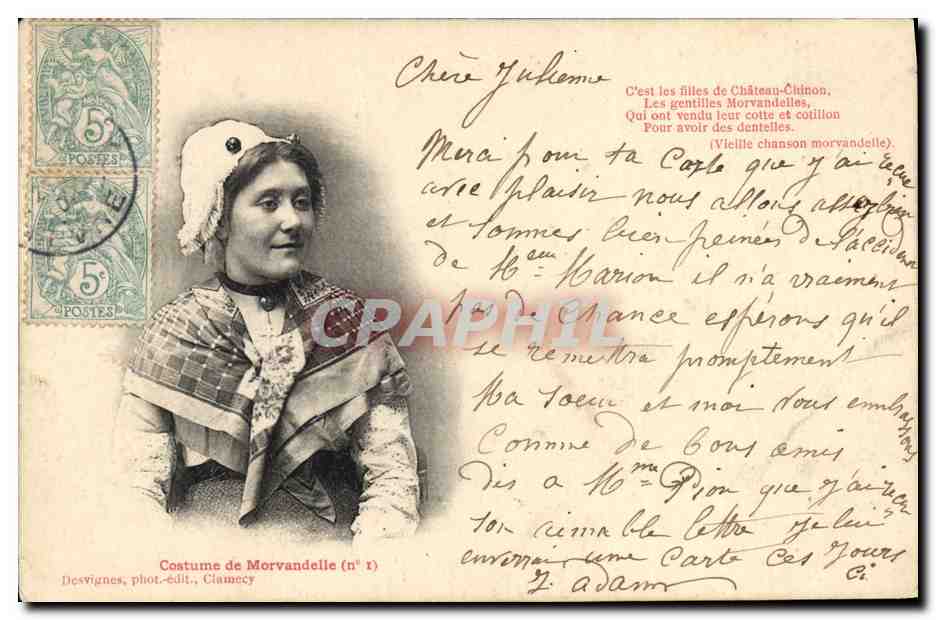 5c
POSTES
5c
POSTES
Chère Julienne
C'est les filles de Château-Chinon,
Les gentilles Morvandelles,
Qui ont vendu leur cotte et cotillon
Pour avoir des dentelles.
(Vieille chanson morvandelle).
Merci pour ta Carte que j'ai recue
avec plaisir nous allons assez bien
et sommes bien peinées de l'accident
de Marion il n'a vraiment
pas de chance espérons qu'il
se remettra promptement
Ma soeur et moi vous embrassons
Comme de bons amis
dis a Mme Pion que j'ai recu
son aimable lettre je lui
enverrai une Carte ces jours
ci
J. adam
CPAPHIL
Costume de Morvandelle (nº 1)
Desvignes, phot.-édit., Clamecy